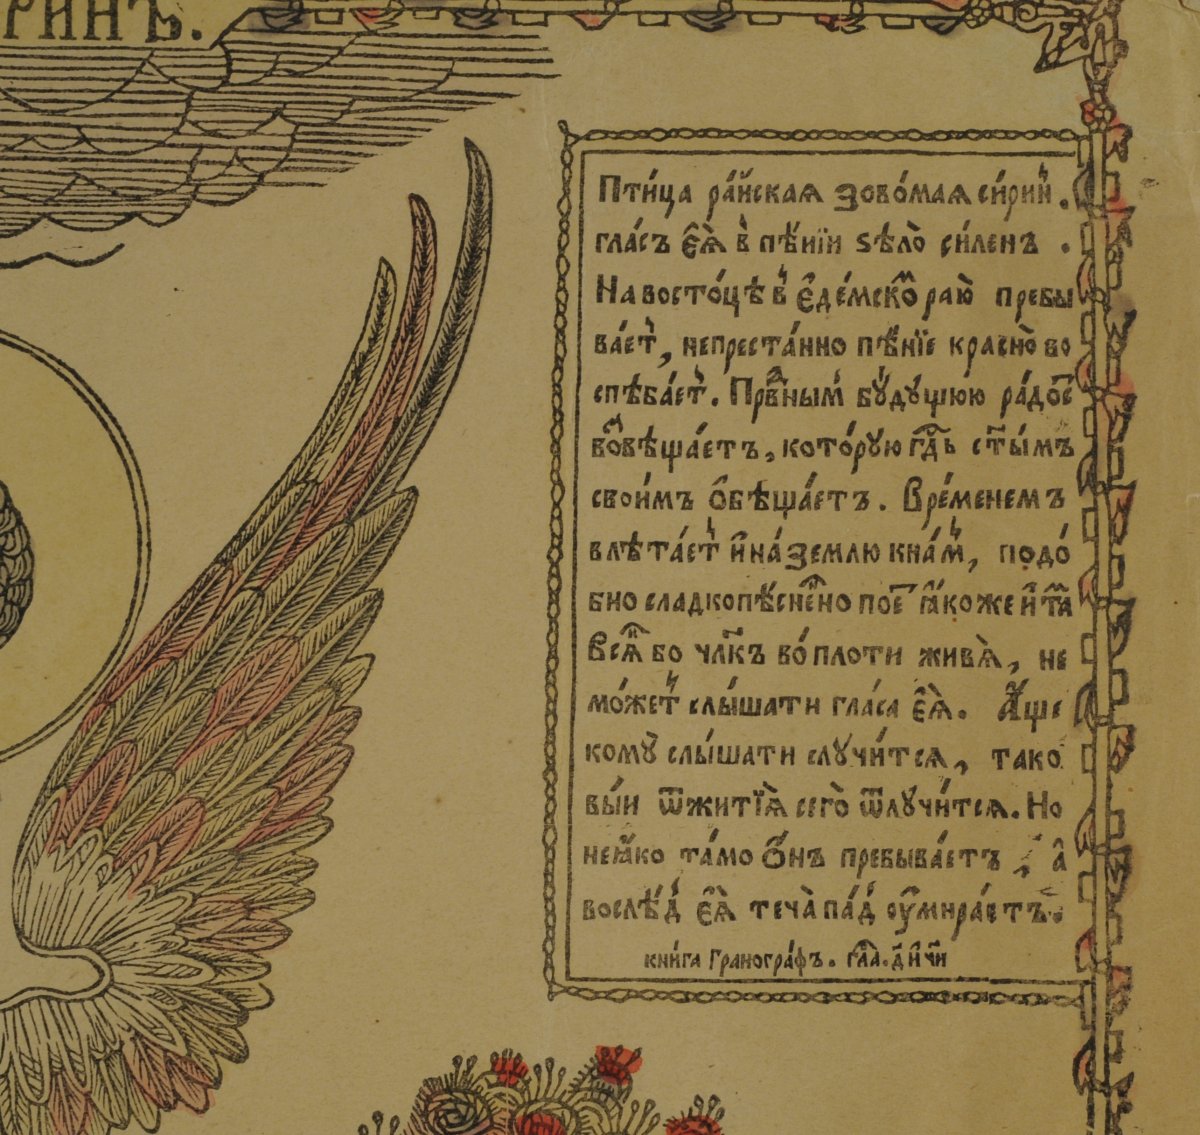 РИНЪ.
Пти́ца ра́йская зово́мая си́рин.
гла́съ є҆ѧ̀ в пѣ́нїи ѕѣлѡ̀ си́ленъ .
На восто́цѣ в є҆де́мском раю̀ пребы
ва́ет, непреста́нно пѣ́нїе красно̀ во
спѣва́ет. Првным бꙋ́дꙋщюю ра́дос
возвѣща́етъ, кото́рꙋю гдь стымъ
свои́мъ ѻ҆бѣща́етъ. Вре́менемъ
влѣта́ет и҆ на́ землю к на́м, подо́
бно сладкопѣ́сненно пое ꙗ҆́коже и҆ та
Всѧк бо члкъ во́ плоти живѧ̀, не
мо́жет слы́шати гла́са є҆ѧ̀. А҆́ще
комꙋ̀ слы́шати слꙋчи́тсѧ, тако
вы́и ѿ житїѧ̀ сего̀ ѿлꙋчи́тсѧ. Но
не ꙗ҆́ко та́мо ѻ҆́нъ пребыва́етъ, а҆
вослѣ́д є҆ѧ̀ теча̀ па́д оу҆мира́етъ.
кни́га Гранографъ. гла. д҃ и҆ чи